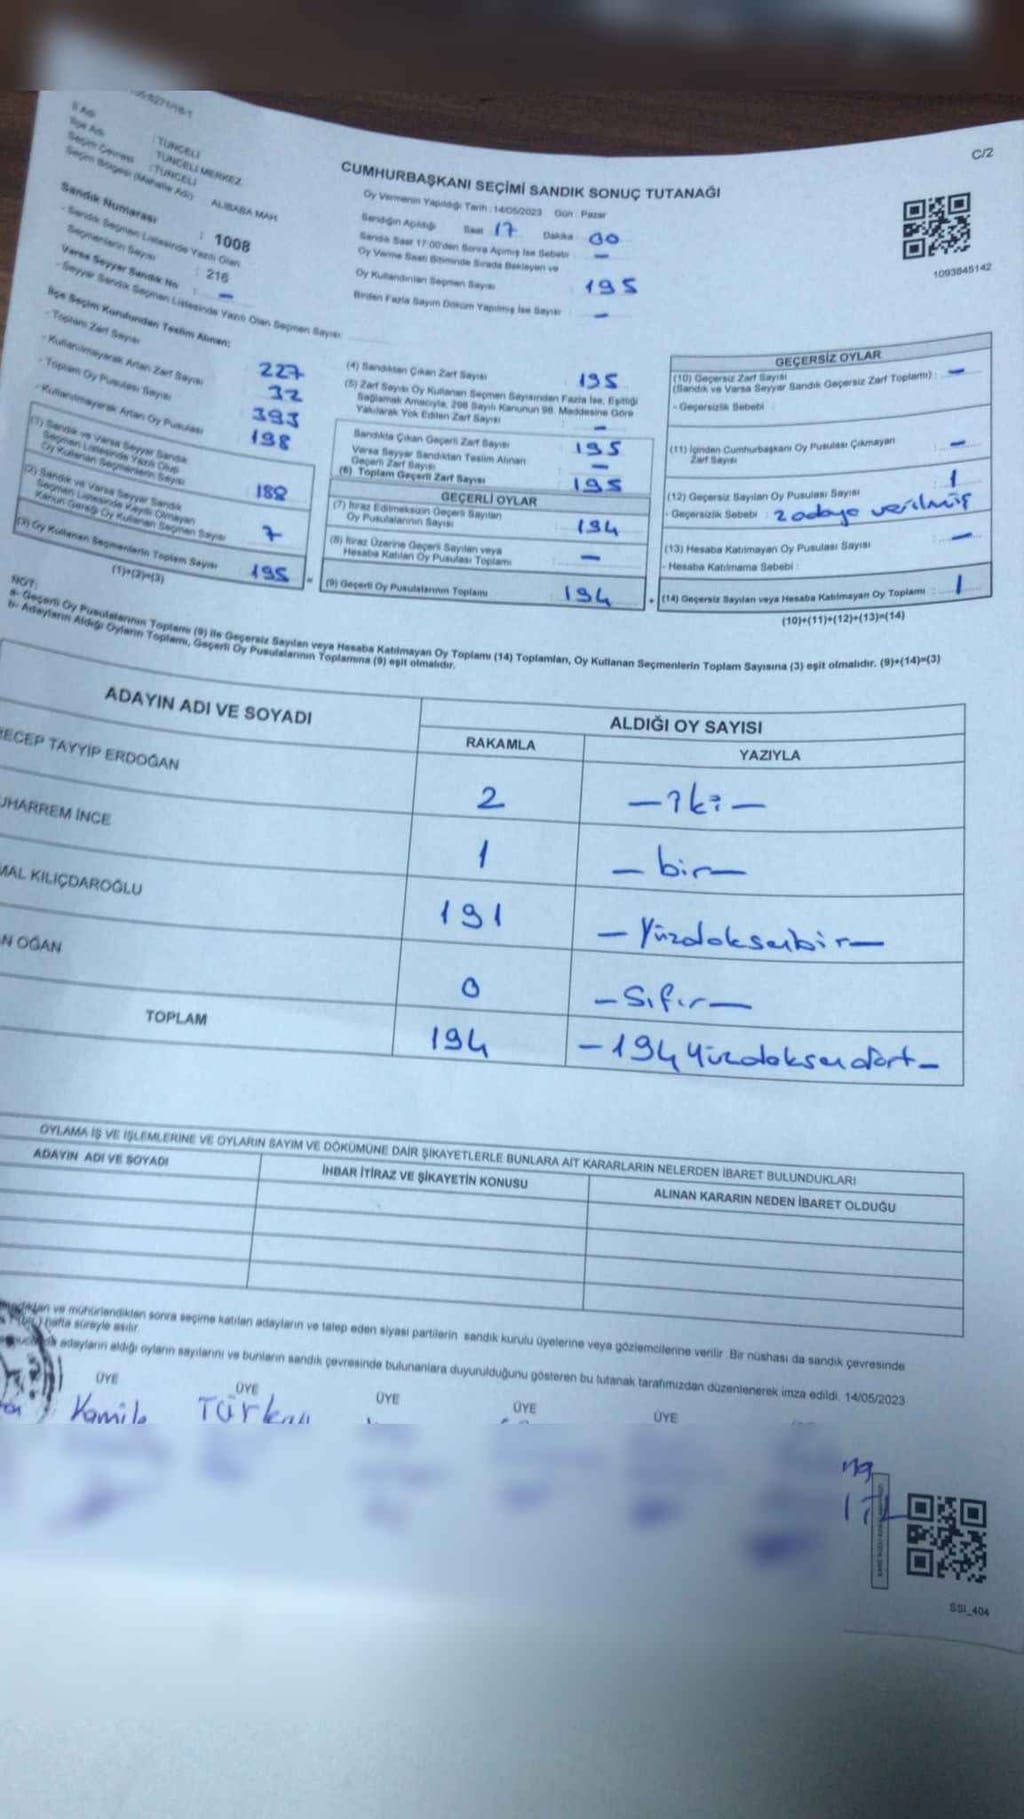 C/2
İl Adı : TUNCELİ
İlçe Adı : TUNCELİ MERKEZ
Seçim Çevresi : TUNCELİ
Seçim Bölgesi (Mahalle Adı) : ALIBABA MAH.
Sandık Numarası : 1008
- Sandık Seçmen Listesinde Yazılı Olan Seçmenlerin Sayısı : 216
Varsa Seyyar Sandık No : –
- Seyyar Sandık Seçmen Listesinde Yazılı Olan Seçmen Sayısı :
CUMHURBAŞKANI SEÇİMİ SANDIK SONUÇ TUTANAĞI
Oy Vermenin Yapıldığı Tarih : 14/05/2023 Gün : Pazar
Sandığın Açıldığı Saat 17 Dakika 00
Sandık Saat 17:00'den Sonra Açılmış İse Sebebi : –
Oy Verme Saati Bitiminde Sırada Bekleyen ve
Oy Kullandırılan Seçmen Sayısı : 195
Birden Fazla Sayım Döküm Yapılmış İse Sayısı : –
1093845142
İlçe Seçim Kurulundan Teslim Alınan:
- Toplam Zarf Sayısı 227
- Kullanılmayarak Artan Zarf Sayısı 32
- Toplam Oy Pusulası Sayısı 393
- Kullanılmayarak Artan Oy Pusulası 198
(1) Sandık ve Varsa Seyyar Sandık
Seçmen Listesinde Yazılı Olup
Oy Kullanan Seçmenlerin Sayısı 188
(2) Sandık ve Varsa Seyyar Sandık
Seçmen Listesinde Kayıtlı Olmayan
Kanun Gereği Oy Kullanan Seçmen Sayısı 7
(3) Oy Kullanan Seçmenlerin Toplam Sayısı 195
(1)+(2)=(3)
(4) Sandıktan Çıkan Zarf Sayısı 195
(5) Zarf Sayısı Oy Kullanan Seçmen Sayısından Fazla İse, Eşitliği
Sağlamak Amacıyla, 298 Sayılı Kanunun 98. Maddesine Göre
Yakılarak Yok Edilen Zarf Sayısı –
Sandıkta Çıkan Geçerli Zarf Sayısı 195
Varsa Seyyar Sandıktan Teslim Alınan
Geçerli Zarf Sayısı –
(6) Toplam Geçerli Zarf Sayısı 195
GEÇERLİ OYLAR
(7) İtiraz Edilmeksizin Geçerli Sayılan
Oy Pusulalarının Sayısı 194
(8) İtiraz Üzerine Geçerli Sayılan veya
Hesaba Katılan Oy Pusulası Toplamı –
(9) Geçerli Oy Pusulalarının Toplamı 194
GEÇERSİZ OYLAR
(10) Geçersiz Zarf Sayısı
(Sandık ve Varsa Seyyar Sandık Geçersiz Zarf Toplamı) : –
- Geçersizlik Sebebi :
(11) İçinden Cumhurbaşkanı Oy Pusulası Çıkmayan
Zarf Sayısı –
(12) Geçersiz Sayılan Oy Pusulası Sayısı 1
- Geçersizlik Sebebi : 2 adaya verilmiş
(13) Hesaba Katılmayan Oy Pusulası Sayısı –
- Hesaba Katılmama Sebebi :
(14) Geçersiz Sayılan veya Hesaba Katılmayan Oy Toplamı : 1
(10)+(11)+(12)+(13)=(14)
NOT:
a- Geçerli Oy Pusulalarının Toplamı (9) ile Geçersiz Sayılan veya Hesaba Katılmayan Oy Toplamı (14) Toplamları, Oy Kullanan Seçmenlerin Toplam Sayısına (3) eşit olmalıdır. (9)+(14)=(3)
b- Adayların Aldığı Oyların Toplamı, Geçerli Oy Pusulalarının Toplamına (9) eşit olmalıdır.
ADAYIN ADI VE SOYADI ALDIĞI OY SAYISI
RAKAMLA YAZIYLA
RECEP TAYYİP ERDOĞAN 2 – iki –
UHARREM İNCE 1 – bir –
MAL KILIÇDAROĞLU 191 – Yüzdoksanbir –
N OĞAN 0 – Sıfır –
TOPLAM 194 – 194 Yüzdoksandört –
OYLAMA İŞ VE İŞLEMLERİNE VE OYLARIN SAYIM VE DÖKÜMÜNE DAİR ŞİKAYETLERLE BUNLARA AİT KARARLARIN NELERDEN İBARET BULUNDUKLARI
ADAYIN ADI VE SOYADI İHBAR İTİRAZ VE ŞİKAYETİN KONUSU ALINAN KARARIN NEDEN İBARET OLDUĞU
ve mühürlendikten sonra seçime katılan adayların ve talep eden siyasi partilerin sandık kurulu üyelerine veya gözlemcilerine verilir. Bir nüshası da sandık çevresinde
hafta süreyle asılır.
adayların aldığı oyların sayılarını ve bunların sandık çevresinde bulunanlara duyurulduğunu gösteren bu tutanak tarafımızdan düzenlenerek imza edildi. 14/05/2023
ÜYE ÜYE ÜYE ÜYE ÜYE
Kamile Türkan
SSI_404